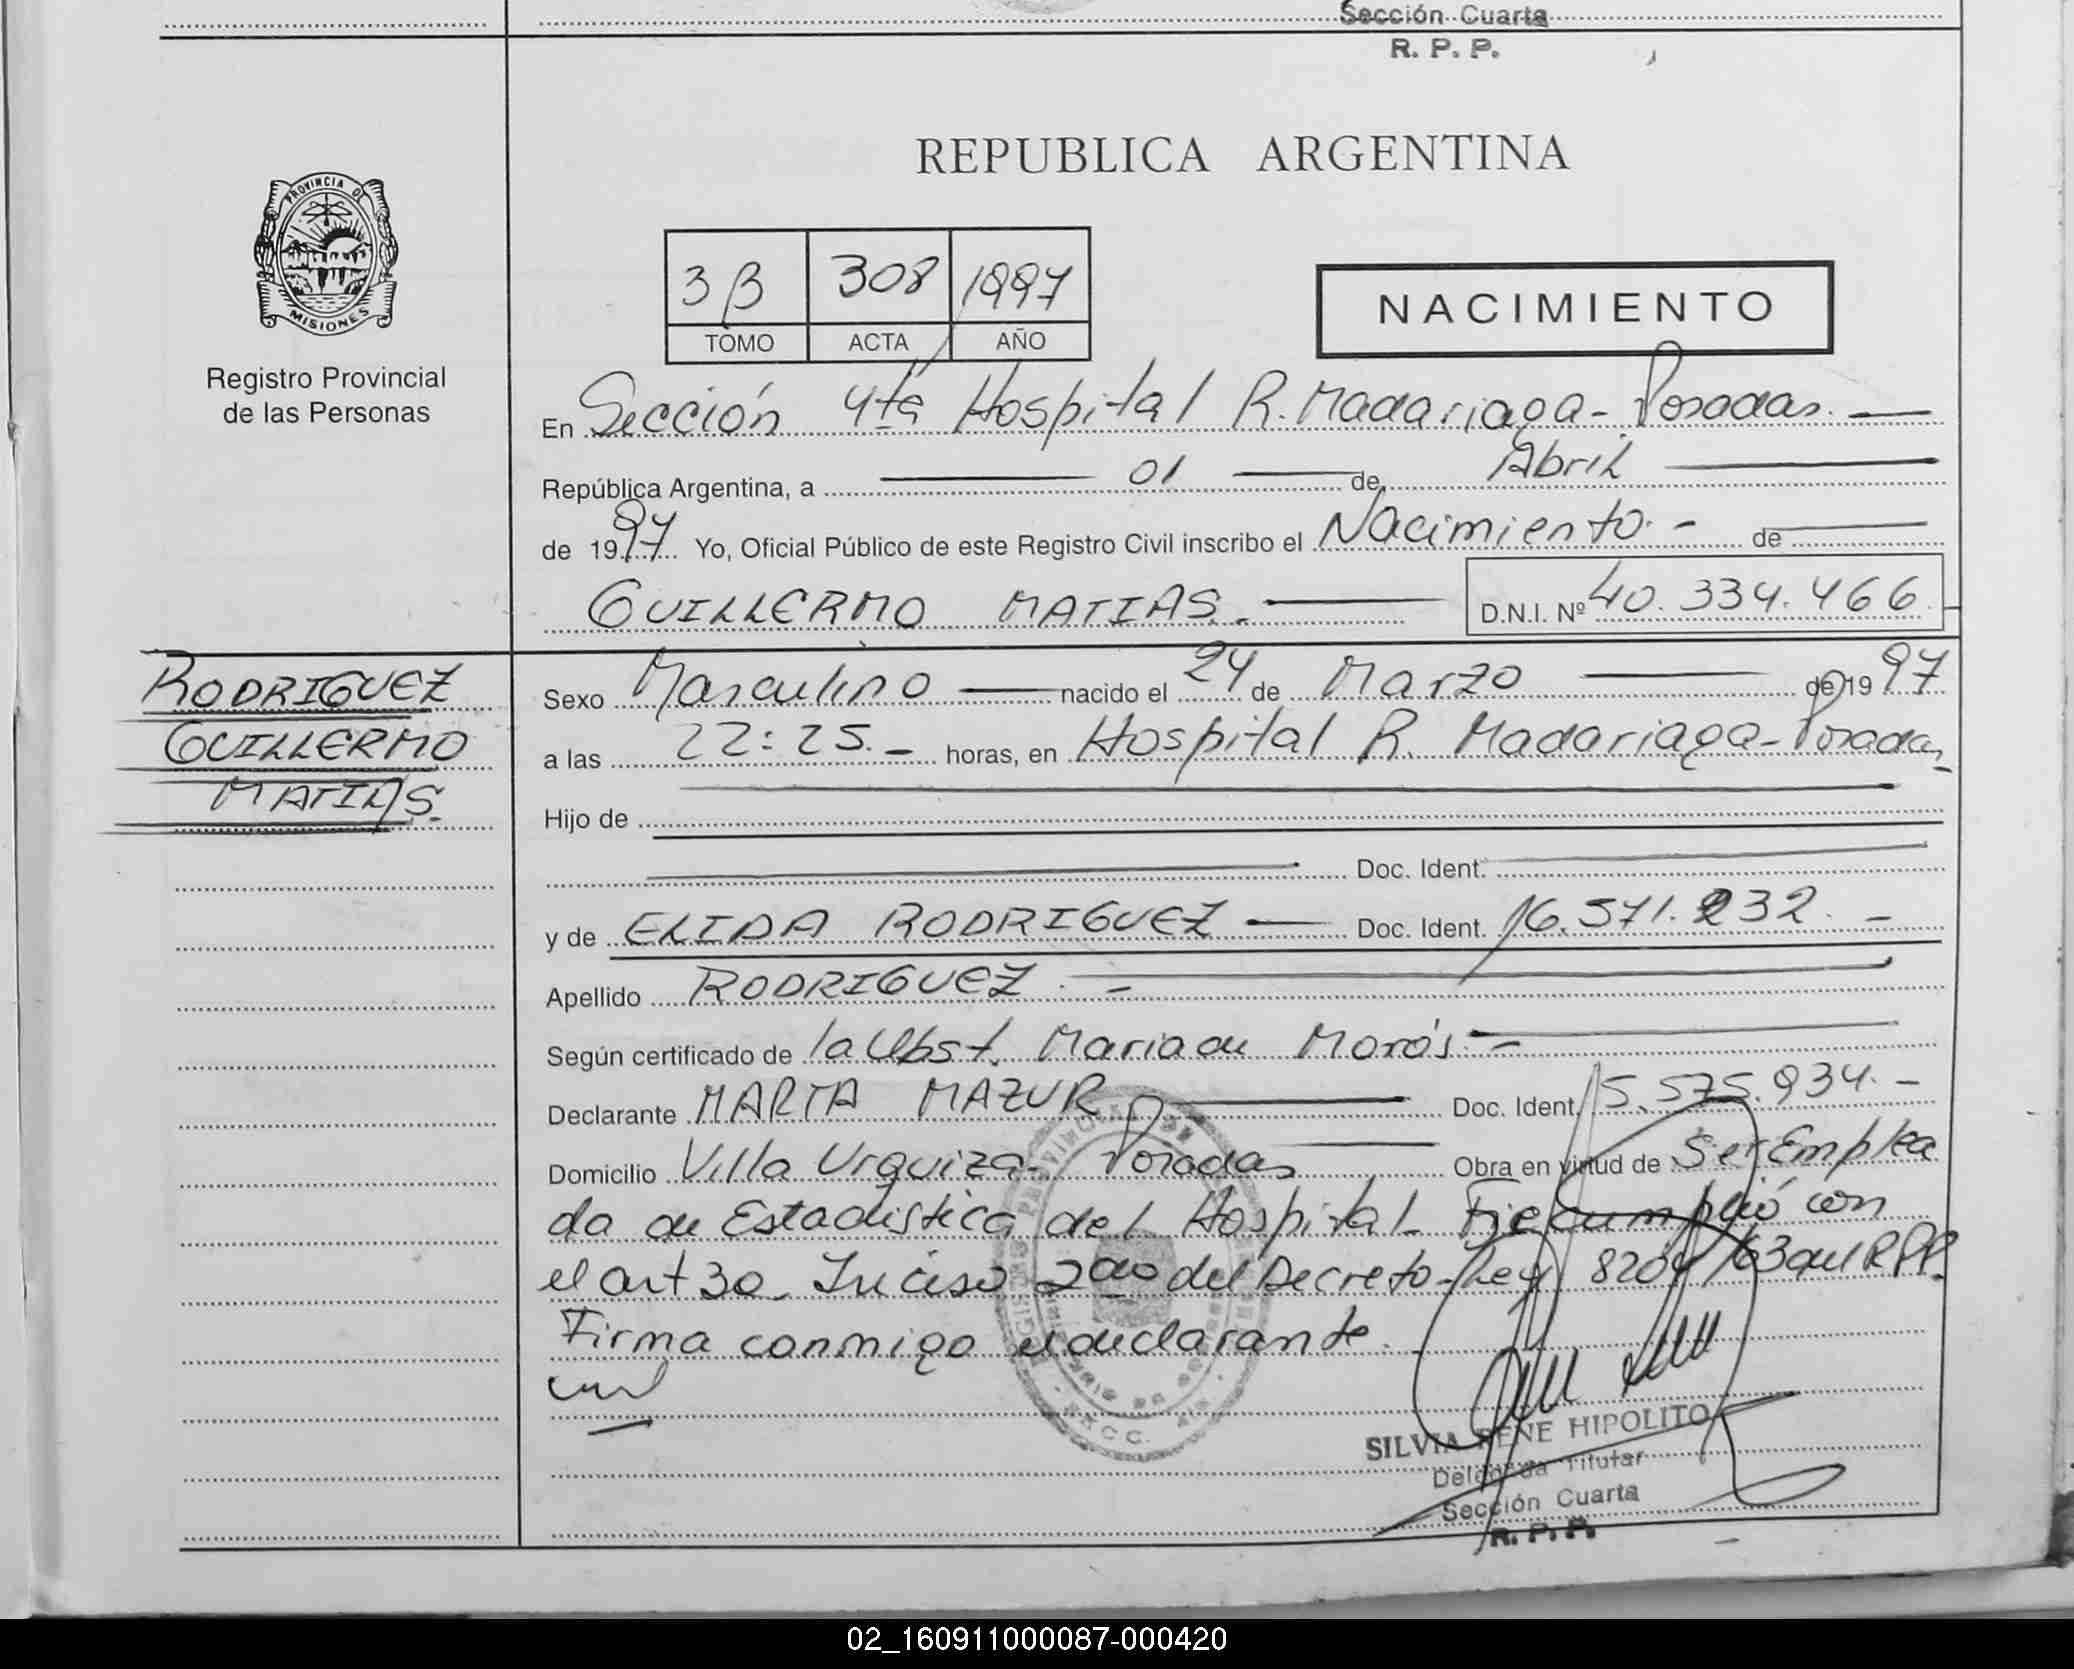 Sección Cuarta
R. P. P.
PROVINCIA DE
MISIONES
Registro Provincial
de las Personas
REPUBLICA ARGENTINA
3B 308 1997
TOMO ACTA AÑO
NACIMIENTO
En Sección 4ta Hospital R. Madariaga - Posadas. —
República Argentina, a — 01 — de Abril —
de 1997 Yo, Oficial Público de este Registro Civil inscribo el Nacimiento. - de —
GUILLERMO MATIAS. — D.N.I. Nº 40.334.466
RODRIGUEZ
GUILLERMO
MATIAS.
Sexo Masculino — nacido el 24 de Marzo — de 1997
a las 22:25. - horas, en Hospital R. Madariaga - Posadas
Hijo de —
— Doc. Ident. —
y de ELIDA RODRIGUEZ — Doc. Ident. 16.571.232. -
Apellido RODRIGUEZ. - —
Según certificado de la Obst. Maria de Morós - —
Declarante MARTA MAZUR — Doc. Ident. 15.575.934. -
Domicilio Villa Urquiza - Posadas — Obra en virtud de Ser Emplea
da de Estadistica del Hospital. Fie cumplió con
el art 30 Inciso 2do del Decreto-Ley 8204/63 del RPP.
Firma conmigo el declarante.
SILVIA RENE HIPOLITO
Delegada Titular
Sección Cuarta
R. P. P.
02_160911000087-000420